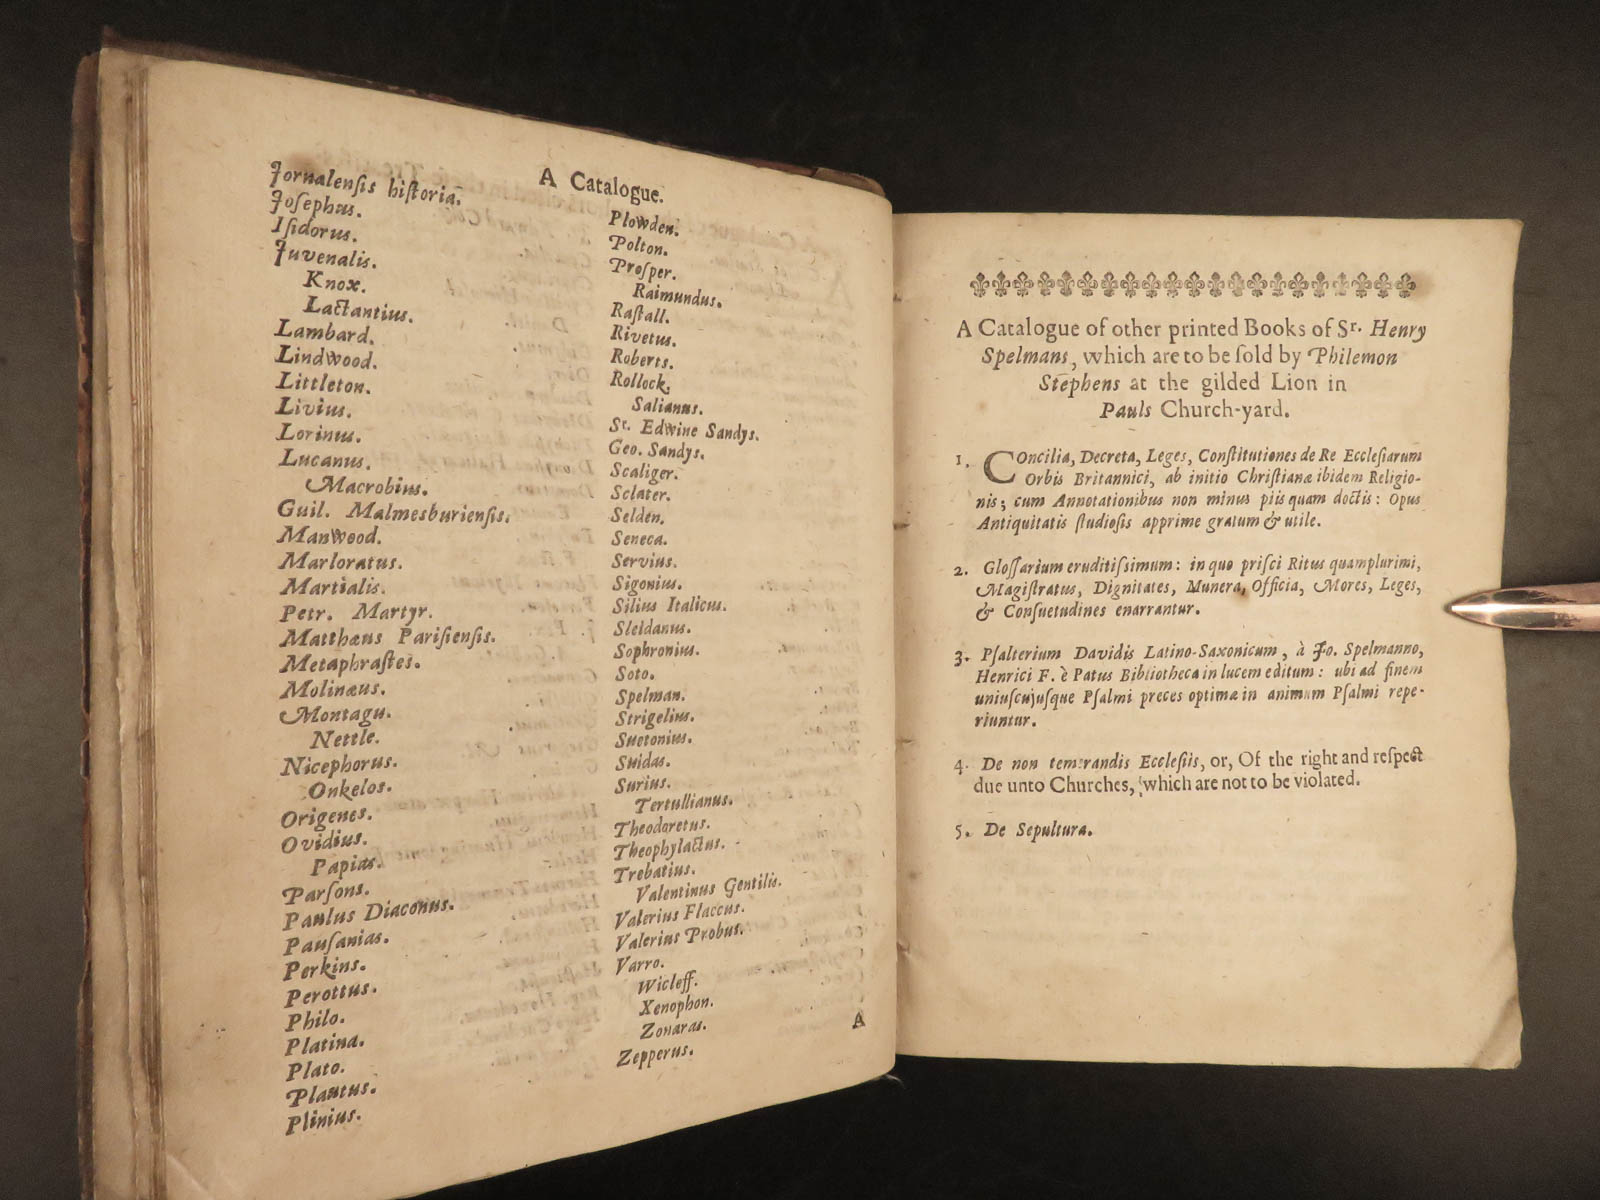 A Catalogue.
Jornalensis historia.
Josephus.
Isidorus.
Juvenalis.
Knox.
Lactantius.
Lambard.
Lindwood.
Littleton.
Livius.
Lorinus.
Lucanus.
Macrobius.
Guil. Malmesburiensis.
Manwood.
Marloratus.
Martialis.
Petr. Martyr.
Matthæus Parisiensis.
Metaphrastes.
Molinæus.
Montagu.
Nettle.
Nicephorus.
Onkelos.
Origenes.
Ovidius.
Papias.
Parsons.
Paulus Diaconus.
Pausanias.
Perkins.
Perottus.
Philo.
Platina.
Plato.
Plautus.
Plinius.
Plowden.
Polton.
Prosper.
Raimundus.
Rastall.
Rivetus.
Roberts.
Rollock.
Salianus.
Sr. Edwine Sandys.
Geo. Sandys.
Scaliger.
Sclater.
Selden.
Seneca.
Servius.
Sigonius.
Silius Italicus.
Sleidanus.
Sophronius.
Soto.
Spelman.
Strigelius.
Suetonius.
Suidas.
Surius.
Tertullianus.
Theodoretus.
Theophylactus.
Trebatius.
Valentinus Gentilis.
Valerius Flaccus.
Valerius Probus.
Varro.
Wicleff.
Xenophon.
Zonaras.
Zepperus.
A
A Catalogue of other printed Books of Sr. Henry
Spelmans, which are to be sold by Philemon
Stephens at the gilded Lion in
Pauls Church-yard.
1. Concilia, Decreta, Leges, Constitutiones de Re Ecclesiarum
Orbis Britannici, ab initio Christianæ ibidem Religio-
nis; cum Annotationibus non minus piis quam doctis: Opus
Antiquitatis studiosis apprime gratum & utile.
2. Glossarium eruditissimum: in quo prisci Ritus quamplurimi,
Magistratus, Dignitates, Munera, Officia, Mores, Leges,
& Consuetudines enarrantur.
3. Psalterium Davidis Latino-Saxonicum, à Jo. Spelmanno,
Henrici F. è Patus Bibliotheca in lucem editum: ubi ad finem
uniuscujusque Psalmi preces optimæ in animum Psalmi repe-
riuntur.
4. De non temerandis Ecclesiis, or, Of the right and respect
due unto Churches, which are not to be violated.
5. De Sepultura.